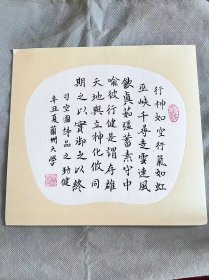 行神如空行氣如虹
巫峽千尋走雲連風
飲真茹強蓄素守中
喻彼行健是謂存雄
天地與立神化攸同
期之以實御之以終
司空圖詩品之勁健
辛丑夏蘭州大學